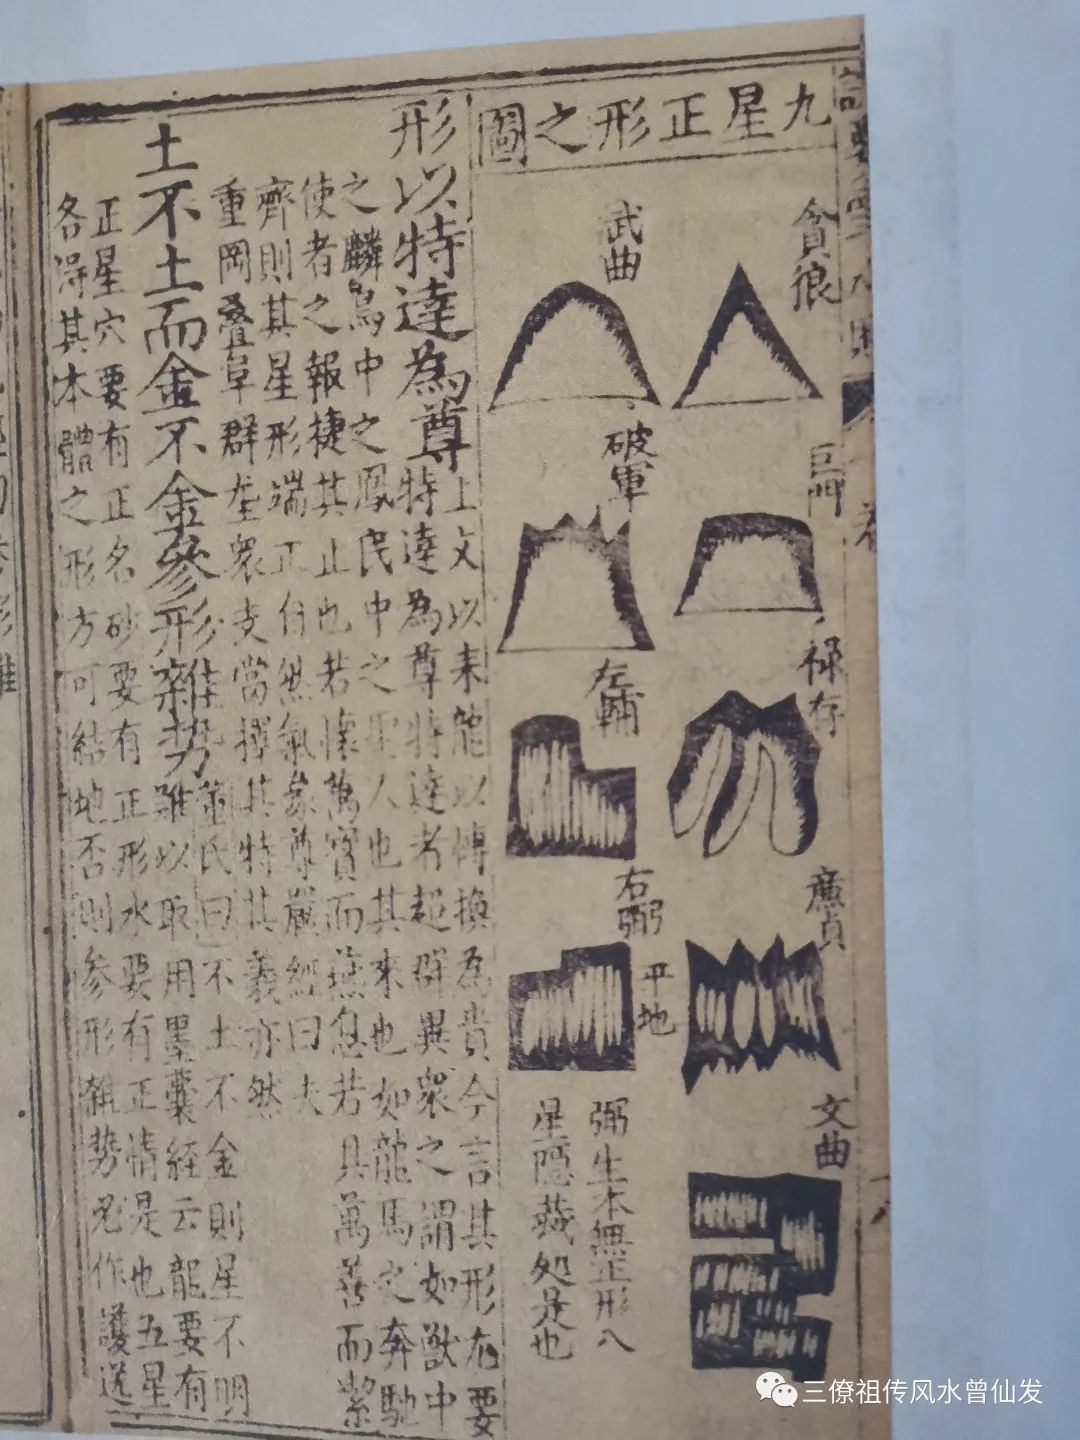 九星正形之圖
貪狼
巨門
祿存
廉貞
文曲
武曲
破軍
左輔
右弼
平地
弼生本無正形八
星隱藏処是也
形以特達為尊
上文以来龍以轉換為貴今言其形尤要
特達為尊特達者超群異衆之謂如獸中
之麟鳥中之鳳民中之聖人也其來也如龍馬之奔馳
使者之報捷其止也若懷萬寶而燕息若具萬善而潔
齊則其星形端正自然氣象尊嚴經曰夫
重岡叠阜群垄衆支當擇其特其義亦然
土不土而金不金參形雜勢
董氏曰不土不金則星不明
雖以取用墨囊経云龍要有
正星穴要有正名砂要有正形水要有正情是也五星
各得其本體之形方可結地否則參形雜勢必作護送
三僚祖传风水曾仙发